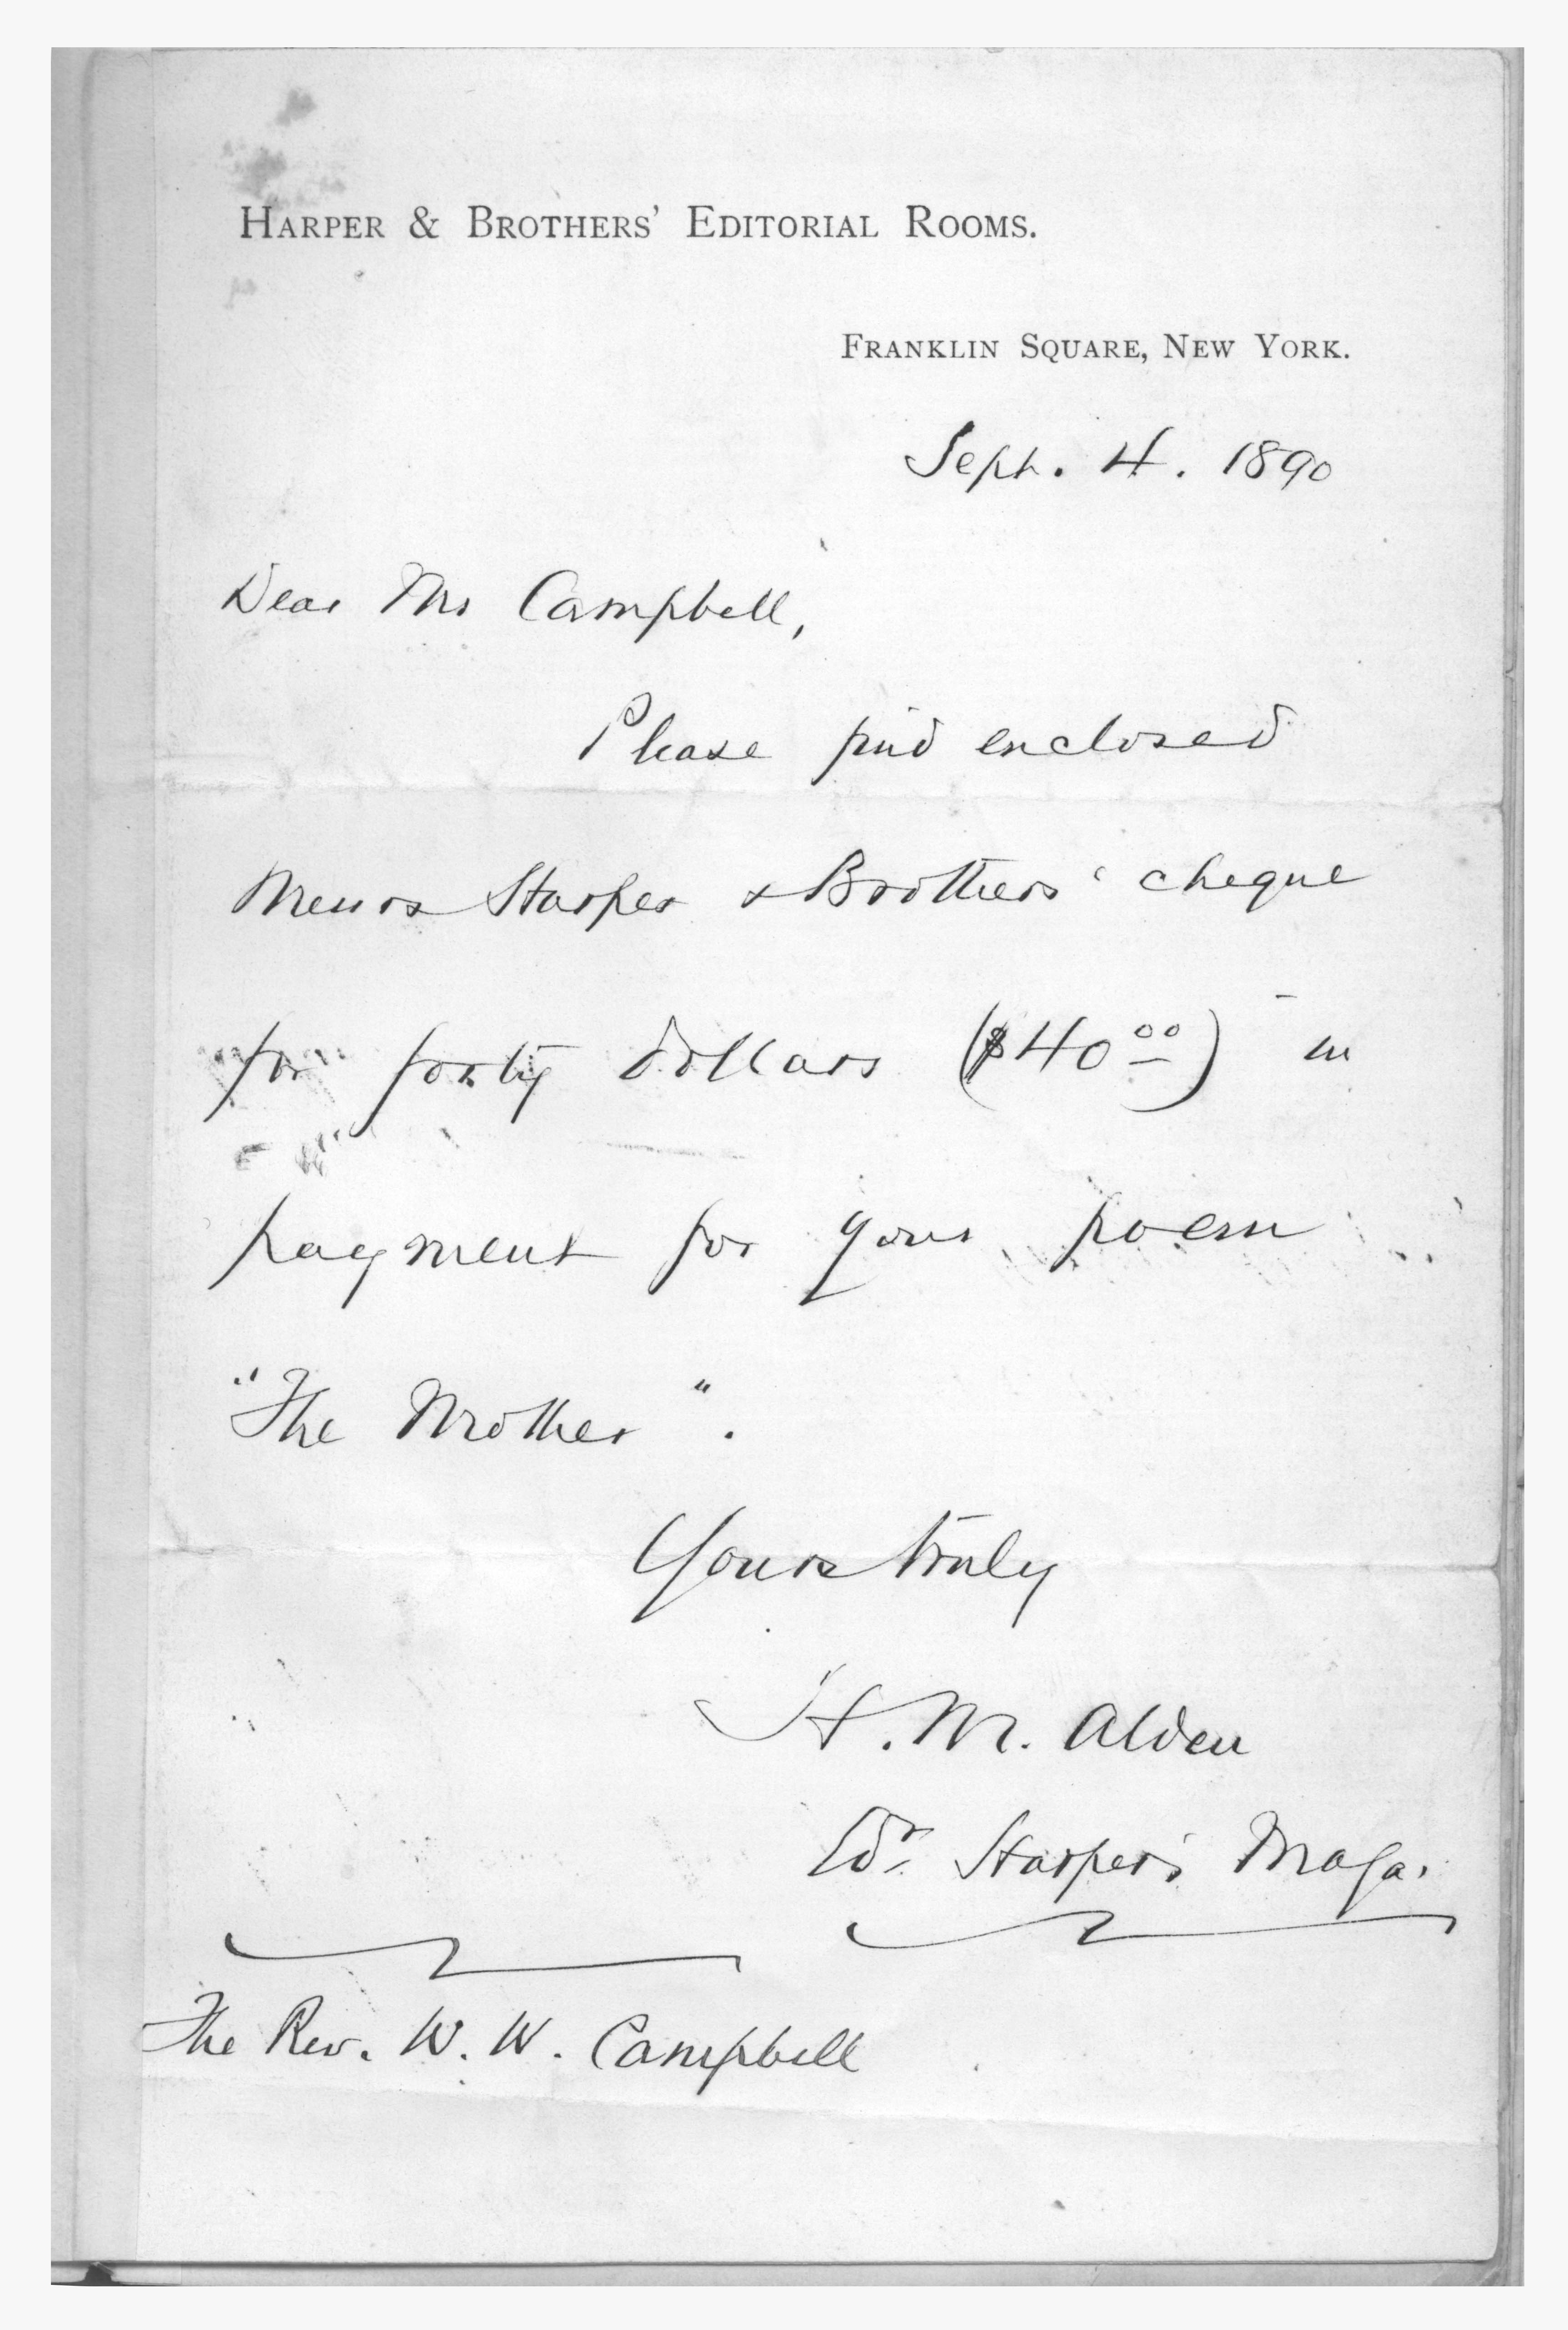 HARPER & BROTHERS' EDITORIAL ROOMS.
FRANKLIN SQUARE, NEW YORK.
Sept. 4. 1890
Dear Mr Campbell,
Please find enclosed
Messrs Harper & Brothers' cheque
for forty dollars ($40.00) in
payment for your poem
"The Mother".
Yours truly
H. M. Alden
Edr. Harper's Maga.
The Rev. W. W. Campbell